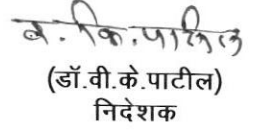 व. कि. पाटील
(डॉ.वी.के.पाटील)
निदेशक